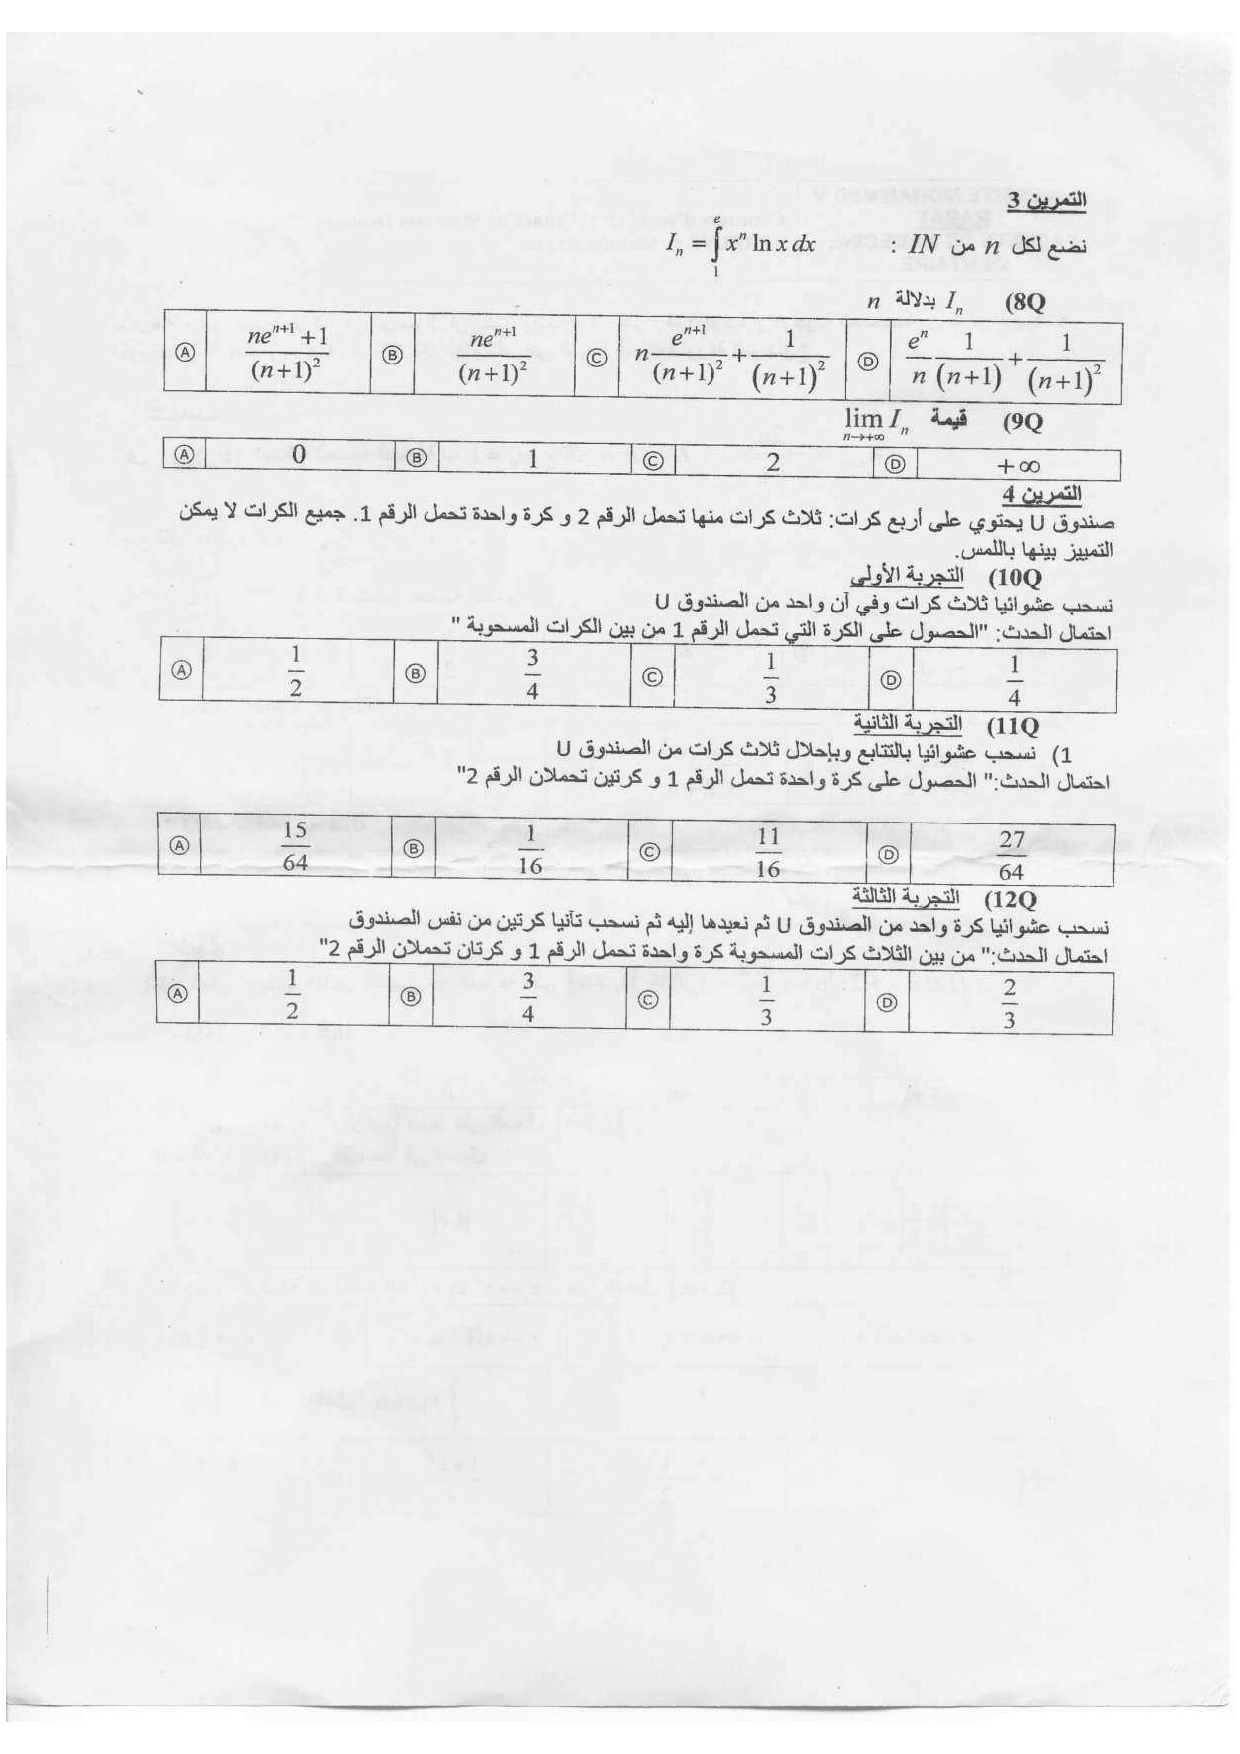 التمرين 3
نضع لكل n من IN : I_n = ∫_1^e x^n ln x dx
8Q) I_n بدلالة n
Ⓐ (ne^{n+1} + 1)/(n+1)^2 Ⓑ ne^{n+1}/(n+1)^2 Ⓒ n e^{n+1}/(n+1)^2 + 1/(n+1)^2 Ⓓ e^n/n 1/(n+1) + 1/(n+1)^2
9Q) قيمة lim_{n→+∞} I_n
Ⓐ 0 Ⓑ 1 Ⓒ 2 Ⓓ +∞
التمرين 4
صندوق U يحتوي على أربع كرات: ثلاث كرات منها تحمل الرقم 2 و كرة واحدة تحمل الرقم 1. جميع الكرات لا يمكن
التمييز بينها باللمس.
10Q) التجربة الأولى
نسحب عشوائيا ثلاث كرات وفي آن واحد من الصندوق U
احتمال الحدث: "الحصول على الكرة التي تحمل الرقم 1 من بين الكرات المسحوبة "
Ⓐ 1/2 Ⓑ 3/4 Ⓒ 1/3 Ⓓ 1/4
11Q) التجربة الثانية
1) نسحب عشوائيا بالتتابع وبإحلال ثلاث كرات من الصندوق U
احتمال الحدث:" الحصول على كرة واحدة تحمل الرقم 1 و كرتين تحملان الرقم 2"
Ⓐ 15/64 Ⓑ 1/16 Ⓒ 11/16 Ⓓ 27/64
12Q) التجربة الثالثة
نسحب عشوائيا كرة واحد من الصندوق U ثم نعيدها إليه ثم نسحب تآنيا كرتين من نفس الصندوق
احتمال الحدث:" من بين الثلاث كرات المسحوبة كرة واحدة تحمل الرقم 1 و كرتان تحملان الرقم 2"
Ⓐ 1/2 Ⓑ 3/4 Ⓒ 1/3 Ⓓ 2/3